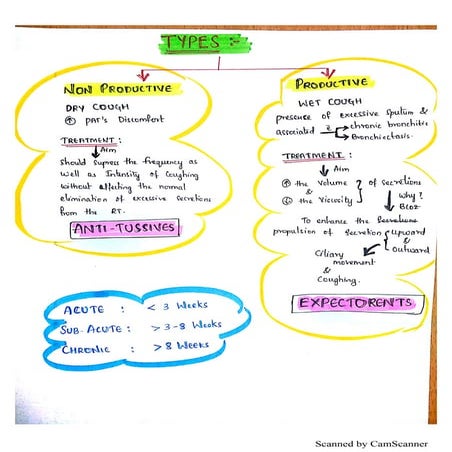 TYPES :-
NON PRODUCTIVE
DRY COUGH
↑ pat's Discomfort
TREATMENT:
↓ Aim
Should supress the frequency as
well as Intensity of Coughing
without affecting the normal
elimination of excessive secretions
from the RT.
ANTI-TUSSIVES
PRODUCTIVE
WET COUGH
presence of excessive sputum &
associated c̄ → chronic bronchitis
→ Bronchiectasis.
TREATMENT :
↓ Aim
↑ the volume } of secretions
&
↓ the Viscosity
↓ Why?
Bcoz
To enhance the Secretions
propulsion of secretion { upward
&
Outward
Ciliary
movement
&
Coughing.
EXPECTORENTS
ACUTE : < 3 Weeks
SUB-ACUTE : > 3-8 Weeks
CHRONIC : > 8 Weeks
Scanned by CamScanner